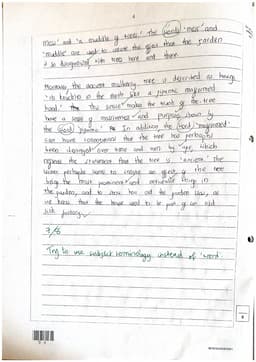 4
mess' and 'a muddle of trees'. The word 'mess' and
'muddle' are used to create the effect that the garden
is so disorganised with trees here and there.
Moreover, the ancient mulberry tree is described as having
'its knuckles in the earth like a gigantic malformed
hand.' This simile makes the trunk of the tree
have a sense of massiveness and purpose shown by
the word 'gigantic'. In addition the word 'malformed'
can have connotations that the tree has perhaps
been destroyed over time and worn by age, which
the statement that the tree is 'ancient'. The
writer perhaps wants to create an effect of the tree
being the most prominent and thing in
the garden, and to show how old the garden is, as
we know that the house used to be part of an old
7/8
Try to use subject terminology instead of 'word'.
8